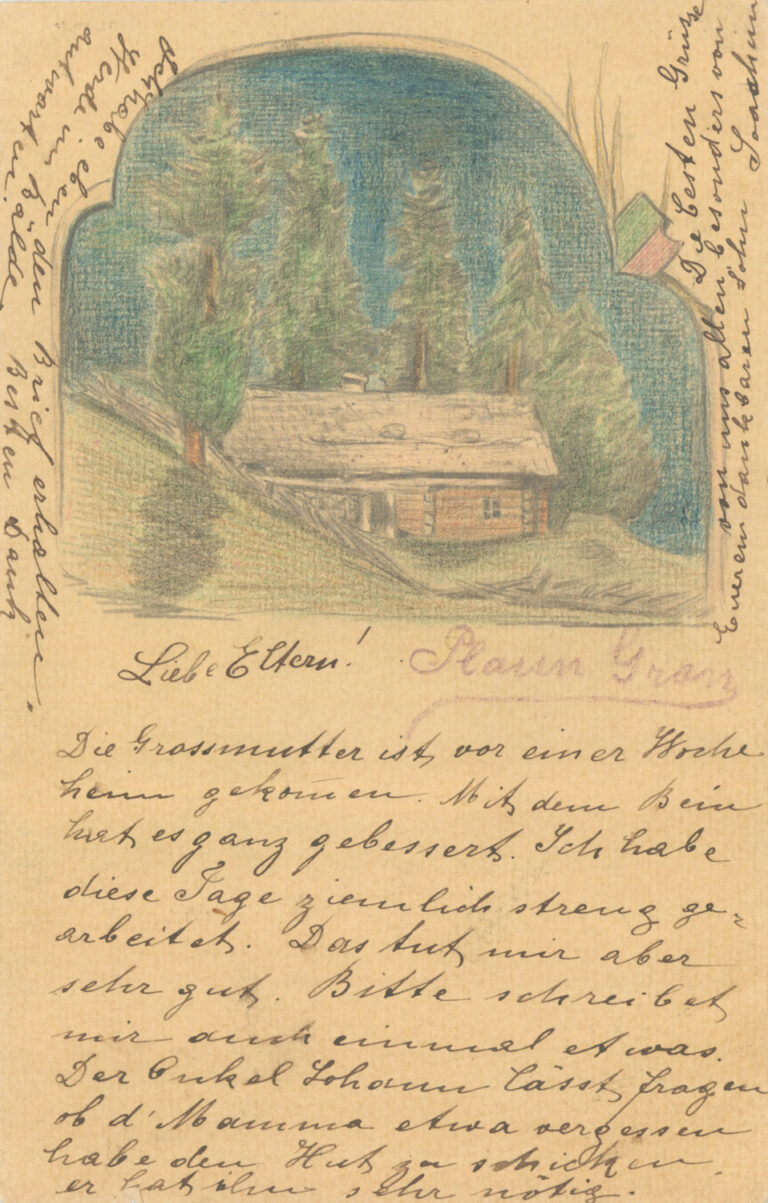 Liebe Eltern!
Plaun Gron
Die Grossmutter ist vor einer Woche
heim gekom̄en. Mit dem Bein
hat es ganz gebessert. Ich habe
diese Tage ziemlich streng ge=
arbeitet. Das tut mir aber
sehr gut. Bitte schreibet
mir auch einmal etwas.
Der Onkel Johann lässt fragen
ob d' Mamma etwa vergessen
habe den Hut zu schicken,
er hat ihn sehr nötig.
Ich habe eben den Brief erhalten.
Werde in Bälde
antworten. Besten Dank
Die besten Grüsse
von uns allen besonders von
Eurem dankbaren Sohn Joachim